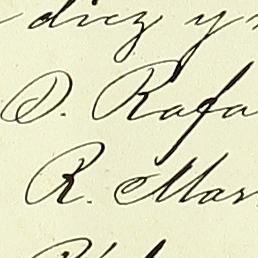 diez y
D. Rafa
R. Mar